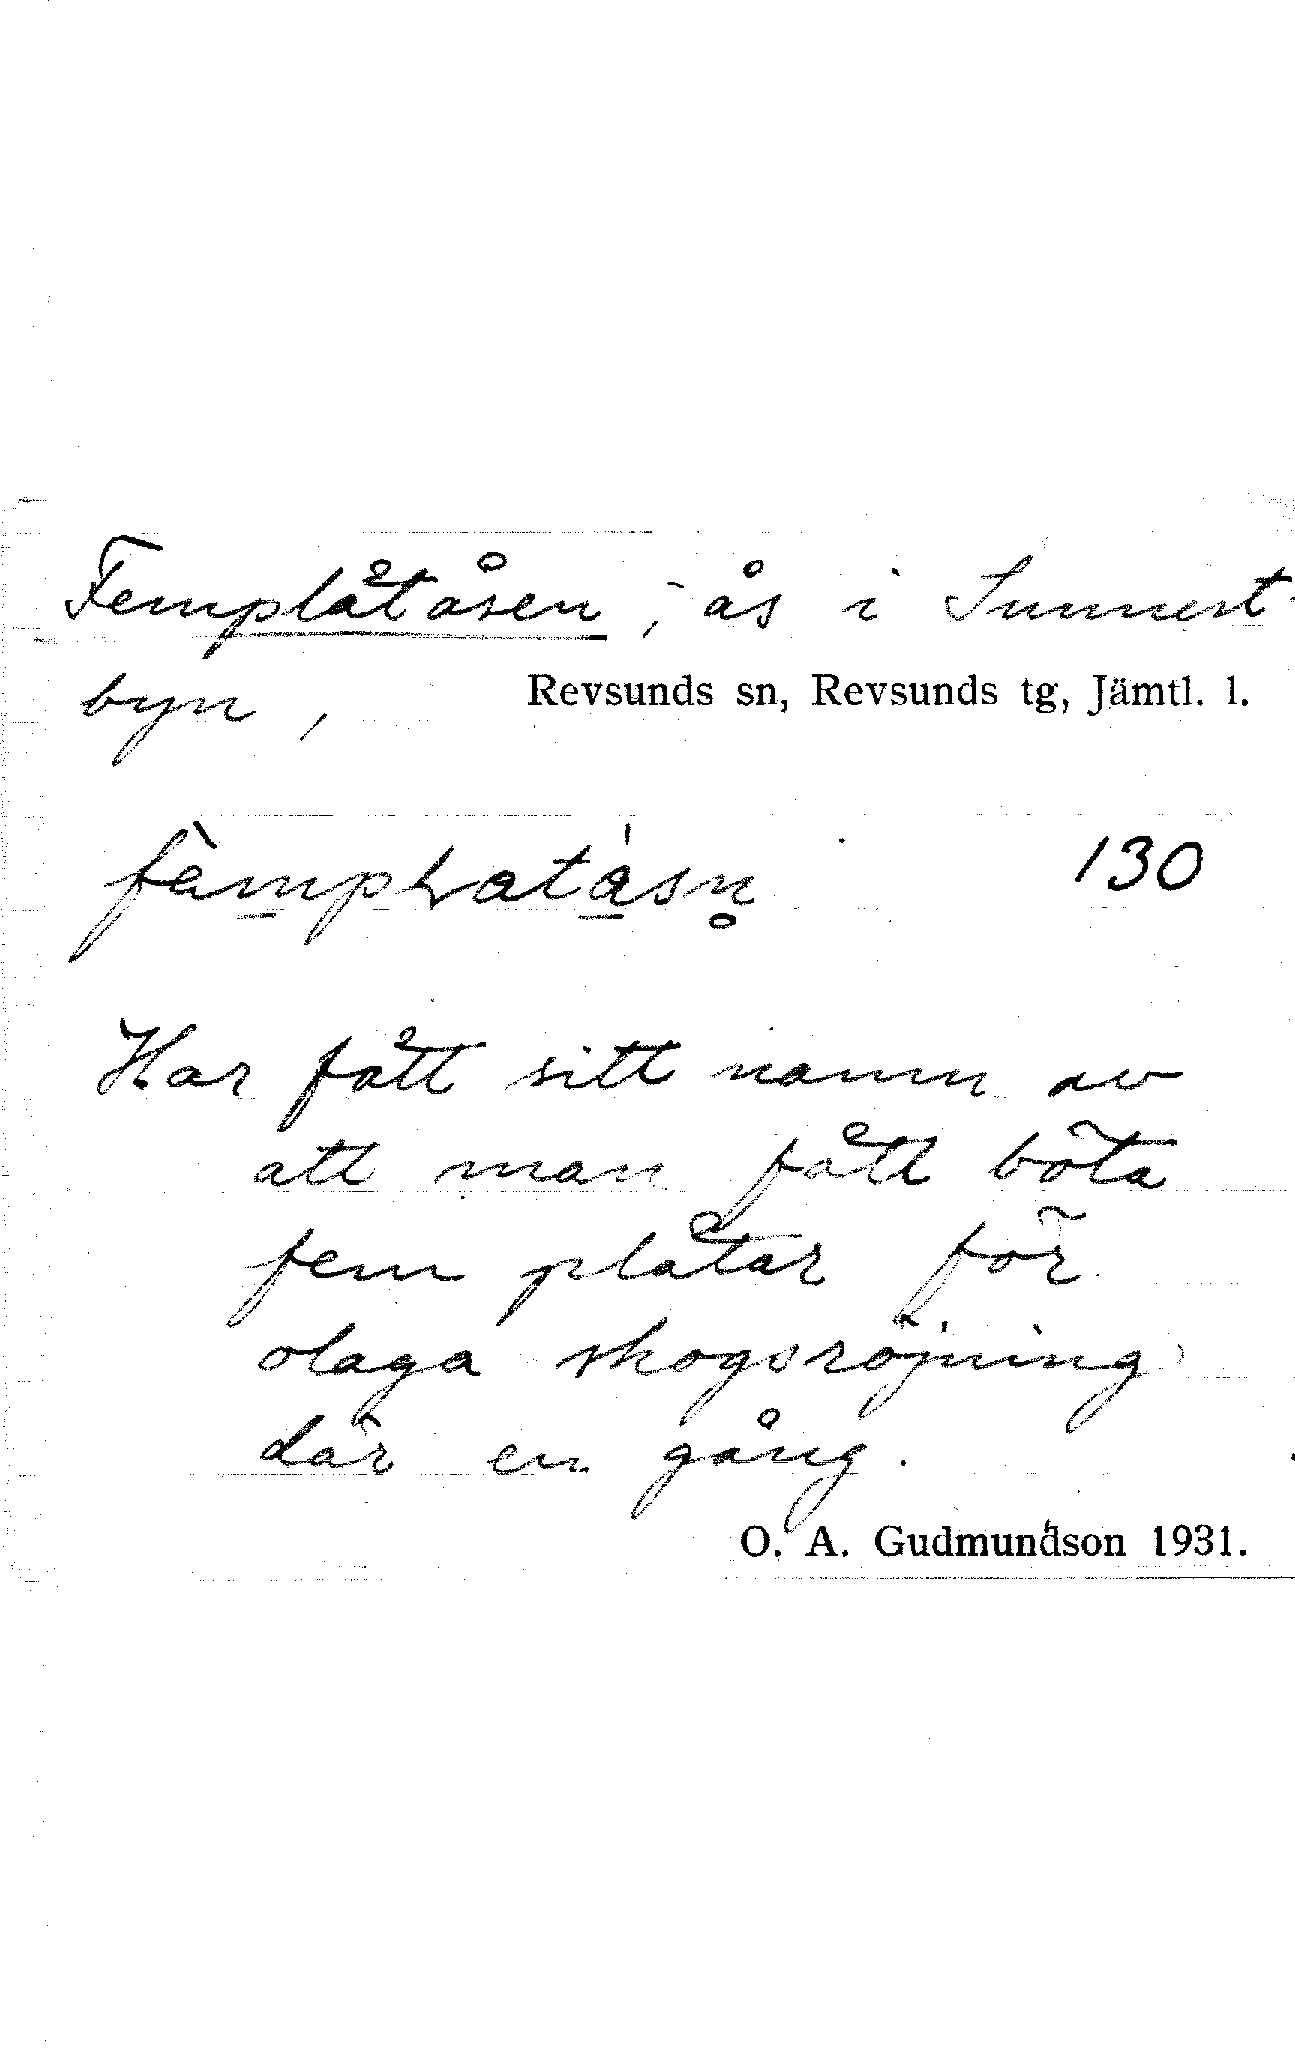 Femplåtåsen, ås i Sunnert-
byn, Revsunds sn, Revsunds tg, Jämtl. l.
130
Har fått sitt namn av
att man fått böta
fem plåtar för
olaga skogsröjning
där en gång.
O. A. Gudmundson 1931.